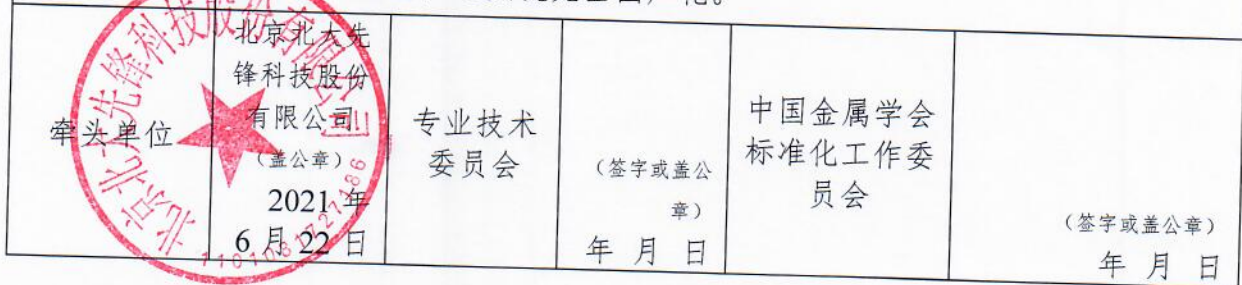 牵头单位
北京北大先
锋科技股份
有限公司
（盖公章）
2021 年
6 月 22 日
专业技术
委员会
（签字或盖公
章）
年 月 日
中国金属学会
标准化工作委
员会
（签字或盖公章）
年 月 日
北京北大先锋科技股份有限公司